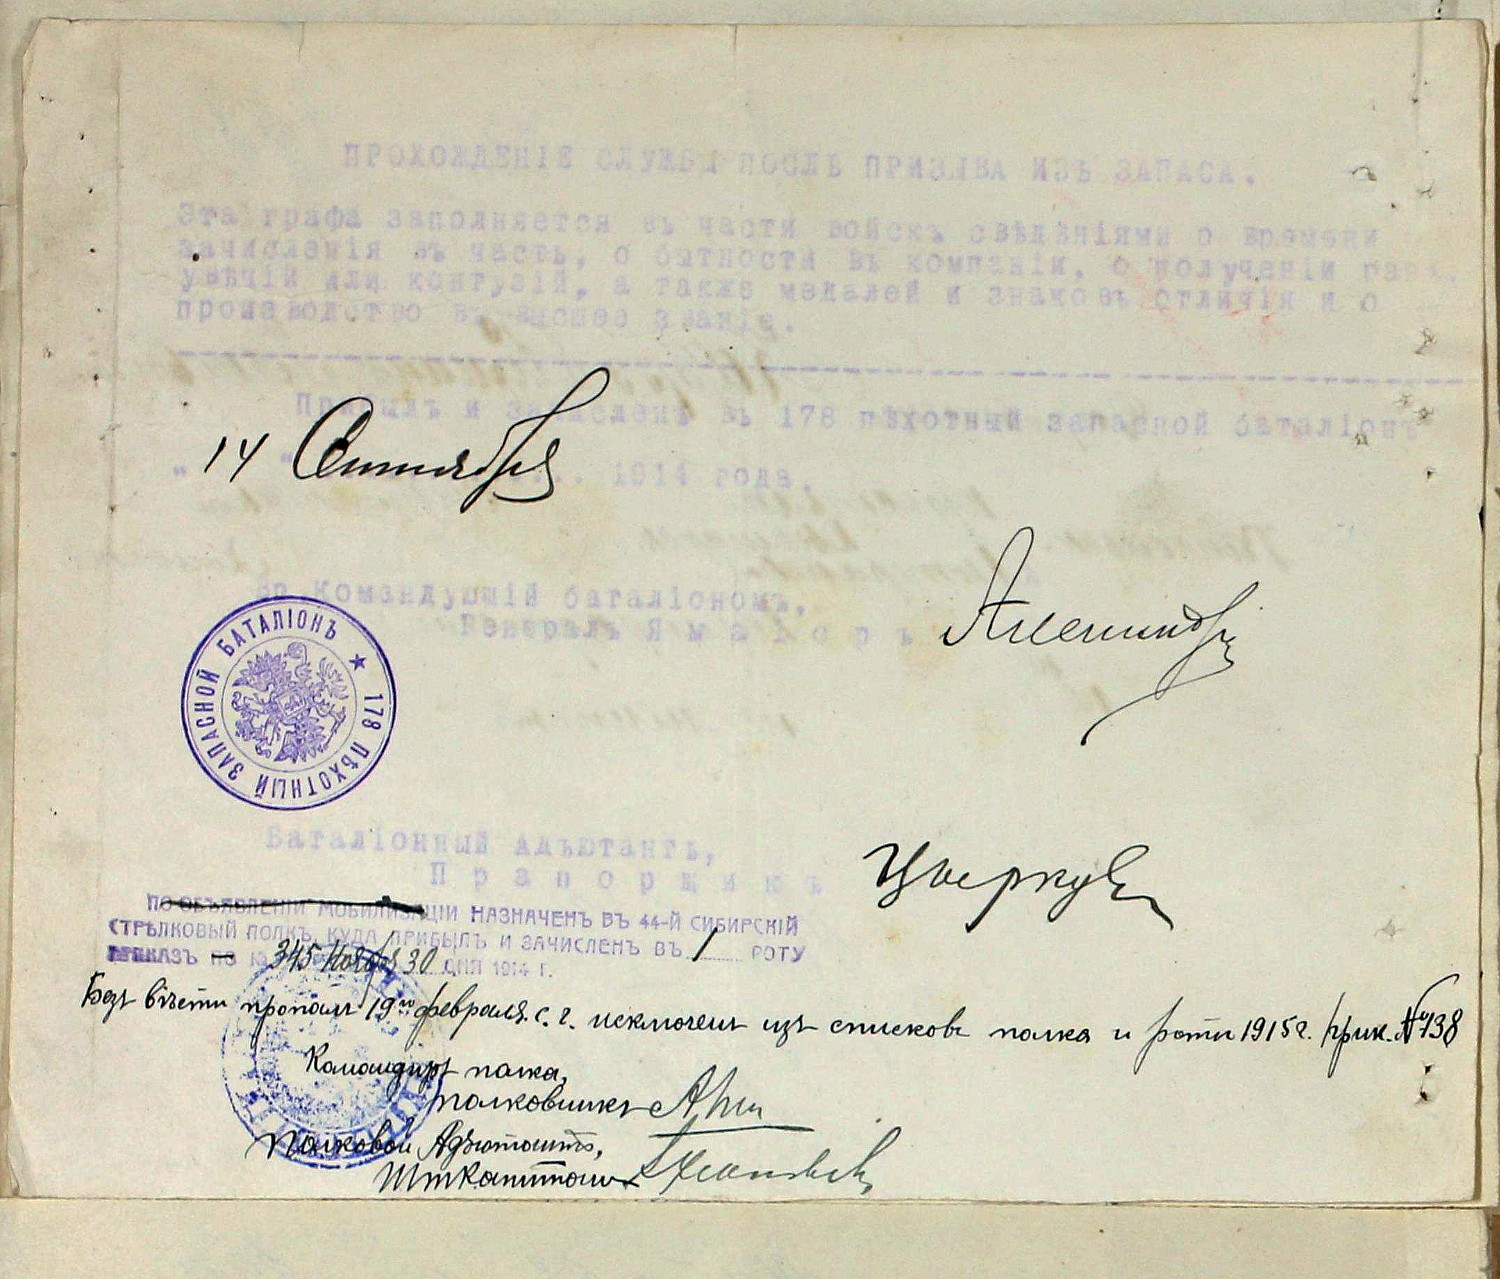 ПРОХОЖДЕНІЕ СЛУЖБЫ ПОСЛѢ ПРИЗЫВА ИЗЪ ЗАПАСА.
Эта графа заполняется въ части войскъ свѣдѣніями о времени
зачисленія въ часть, о бытности въ компаніи, о полученіи ранъ,
увѣчій или контузій, а также медалей и знаковъ отличія и о
производство въ высшее званіе.
Прибылъ и зачисленъ въ 178 пѣхотный запасной баталіонъ
14 Сентября
1914 года.
Командующій баталіономъ,
Генералъ
178 ПѢХОТНЫЙ ЗАПАСНОЙ БАТАЛІОНЪ
Баталіонный Адъютантъ,
Прапорщикъ
ПО ОБЪЯВЛЕНІИ МОБИЛИЗАЦІИ НАЗНАЧЕНЪ ВЪ 44-Й СИБИРСКІЙ
СТРѢЛКОВЫЙ ПОЛКЪ, КУДА ПРИБЫЛЪ И ЗАЧИСЛЕНЪ ВЪ 1 РОТУ
ПРИКАЗЪ ПО 345 Ноября 30 ДНЯ 1914 г.
Безъ вѣсти пропалъ 19го февраля с. г. исключенъ изъ списковъ полка и роты 1915 г. прик. № 138
Командиръ полка,
полковникъ
Полковой Адъютантъ,
Шт. Капитанъ